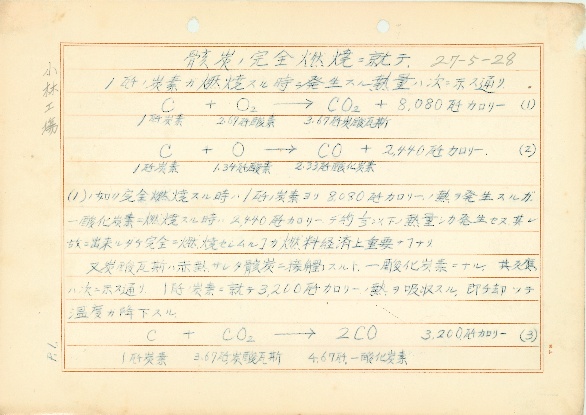 骸炭ノ完全燃焼ニ就テ. 27-5-28
小林工場
1瓩ノ炭素ガ燃焼スル時ニ発生スル熱量ハ次ニ示ス通リ
C + O2 → CO2 + 8,080瓩カロリー (1)
1瓩炭素 2.67瓩酸素 3.67瓩炭酸瓦斯
C + O → CO + 2,440瓩カロリー. (2)
1瓩炭素 1.34瓩酸素 2.33瓩酸化炭素
(1)ノ如ク完全燃焼スル時ハ1瓩炭素ヨリ8,080瓩カロリーノ熱ヲ発生スルガ
一酸化炭素ニ燃焼スル時ハ2,440瓩カロリー 熱量シカ発生セズ其レ
故ニ出来ルダケ完全ニ燃焼セシムル ガ燃料経済上重要デアリ
又炭酸瓦斯ハ赤熱サレタ骸炭ニ接触スルト、一酸化炭素トナル、其反応
ハ次ニ示ス通リ 1瓩炭素ニ就テ3,200瓩カロリーノ熱ヲ吸収スル、即チ却ツテ
温度ガ降下スル.
C + CO2 → 2CO 3,200瓩カロリー (3)
1瓩炭素 3.67瓩炭酸瓦斯 4.67瓩一酸化炭素